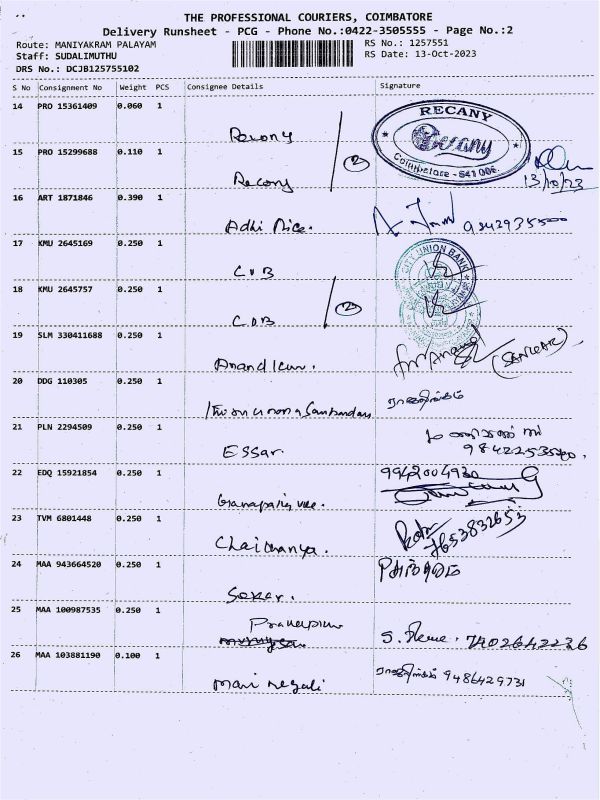 THE PROFESSIONAL COURIERS, COIMBATORE
Delivery Runsheet - PCG - Phone No.:0422-3505555 - Page No.:2
Route: MANIYAKRAM PALAYAM RS No.: 1257551
Staff: SUDALIMUTHU RS Date: 13-Oct-2023
DRS No.: DCJB125755102
S No Consignment No Weight PCS Consignee Details Signature
14 PRO 15361409 0.060 1
RECANY
Recany
Coimbatore - 641 006.
Recony
15 PRO 15299688 0.110 1
2
13/10/23
Recony
16 ART 1871846 0.390 1
Adhi Mice. 9842935500
17 KMU 2645169 0.250 1
CITY UNION BANK
CUB
18 KMU 2645757 0.250 1
2
CUB
19 SLM 330411688 0.250 1
Anand (SANKAR)
20 DDG 110305 0.250 1
21 PLN 2294509 0.250 1
Essar
22 EDQ 15921854 0.250 1
9942004930
23 TVM 6801448 0.250 1
Chaithanya. 7653832653
24 MAA 943664520 0.250 1
Sekar.
25 MAA 100987535 0.250 1
7402642236
26 MAA 103881190 0.100 1
9486429731
Mari